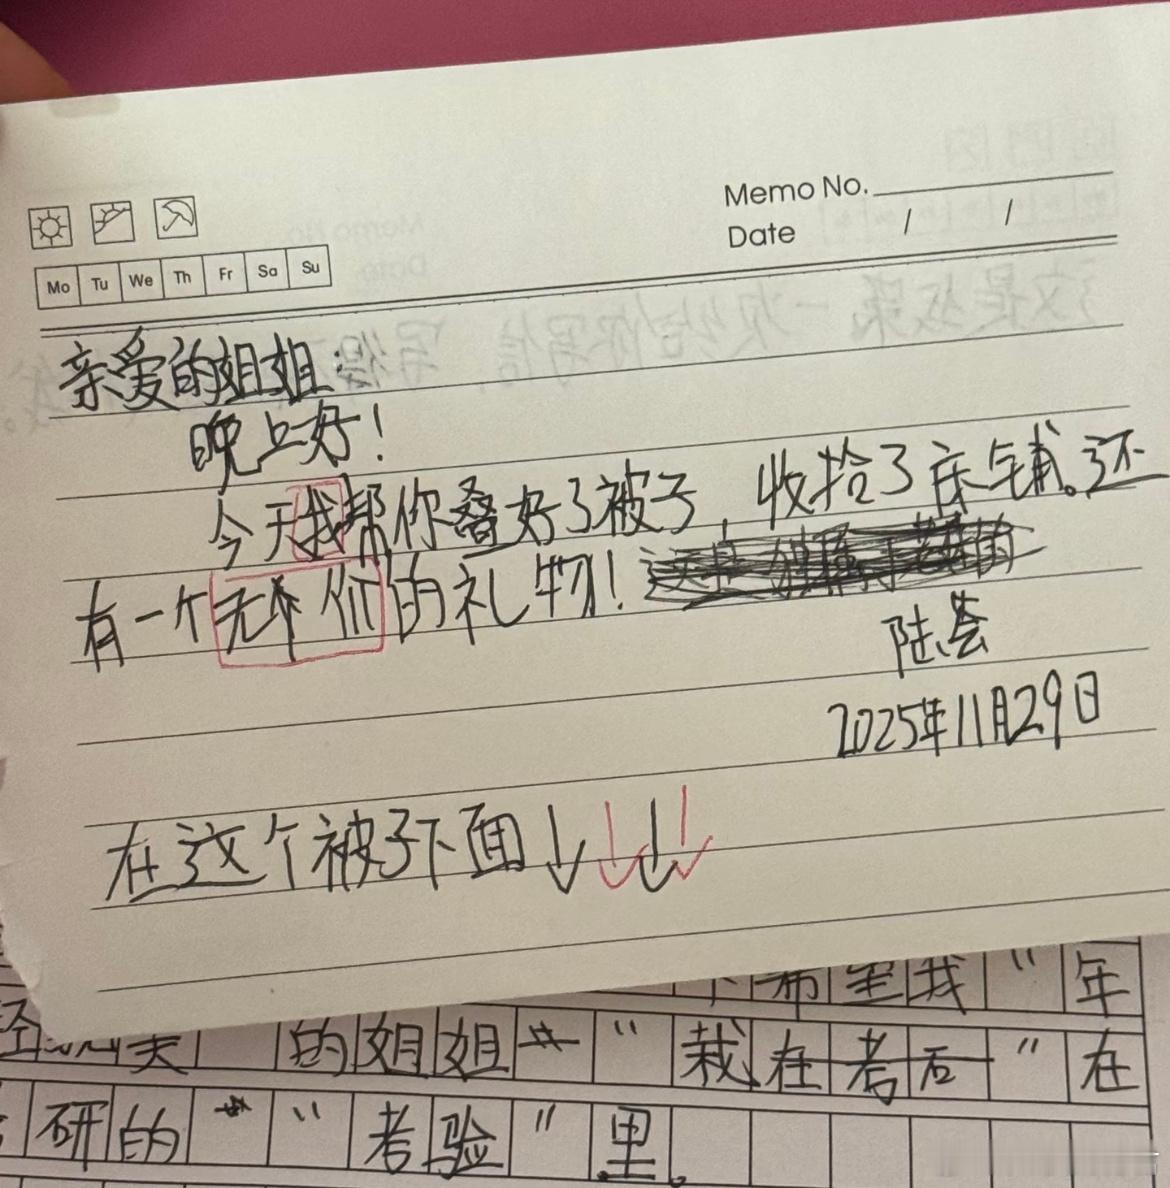 Memo No.
Date / /
Mo Tu We Th Fr Sa Su
亲爱的姐姐：
晚上好！
今天我帮你叠好了被子，收拾了床铺。还
有一个 你的礼物！
陆荟
2025年11月29日
在这个被子下面↓↓↓↓
希望我“年
的姐姐“栽在考后”在
研的“考验”里。